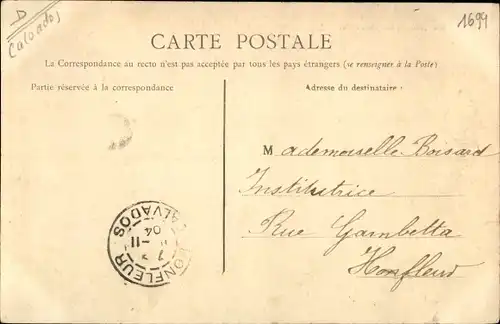 D
Calvados
1699
CARTE POSTALE
La Correspondance au recto n'est pas acceptée par tous les pays étrangers (se renseigner à la Poste)
Partie réservée à la correspondance
Adresse du destinataire
Mademoiselle Boisard
Institutrice
Rue Gambetta
Honfleur
HONFLEUR
CALVADOS
7
-11
04